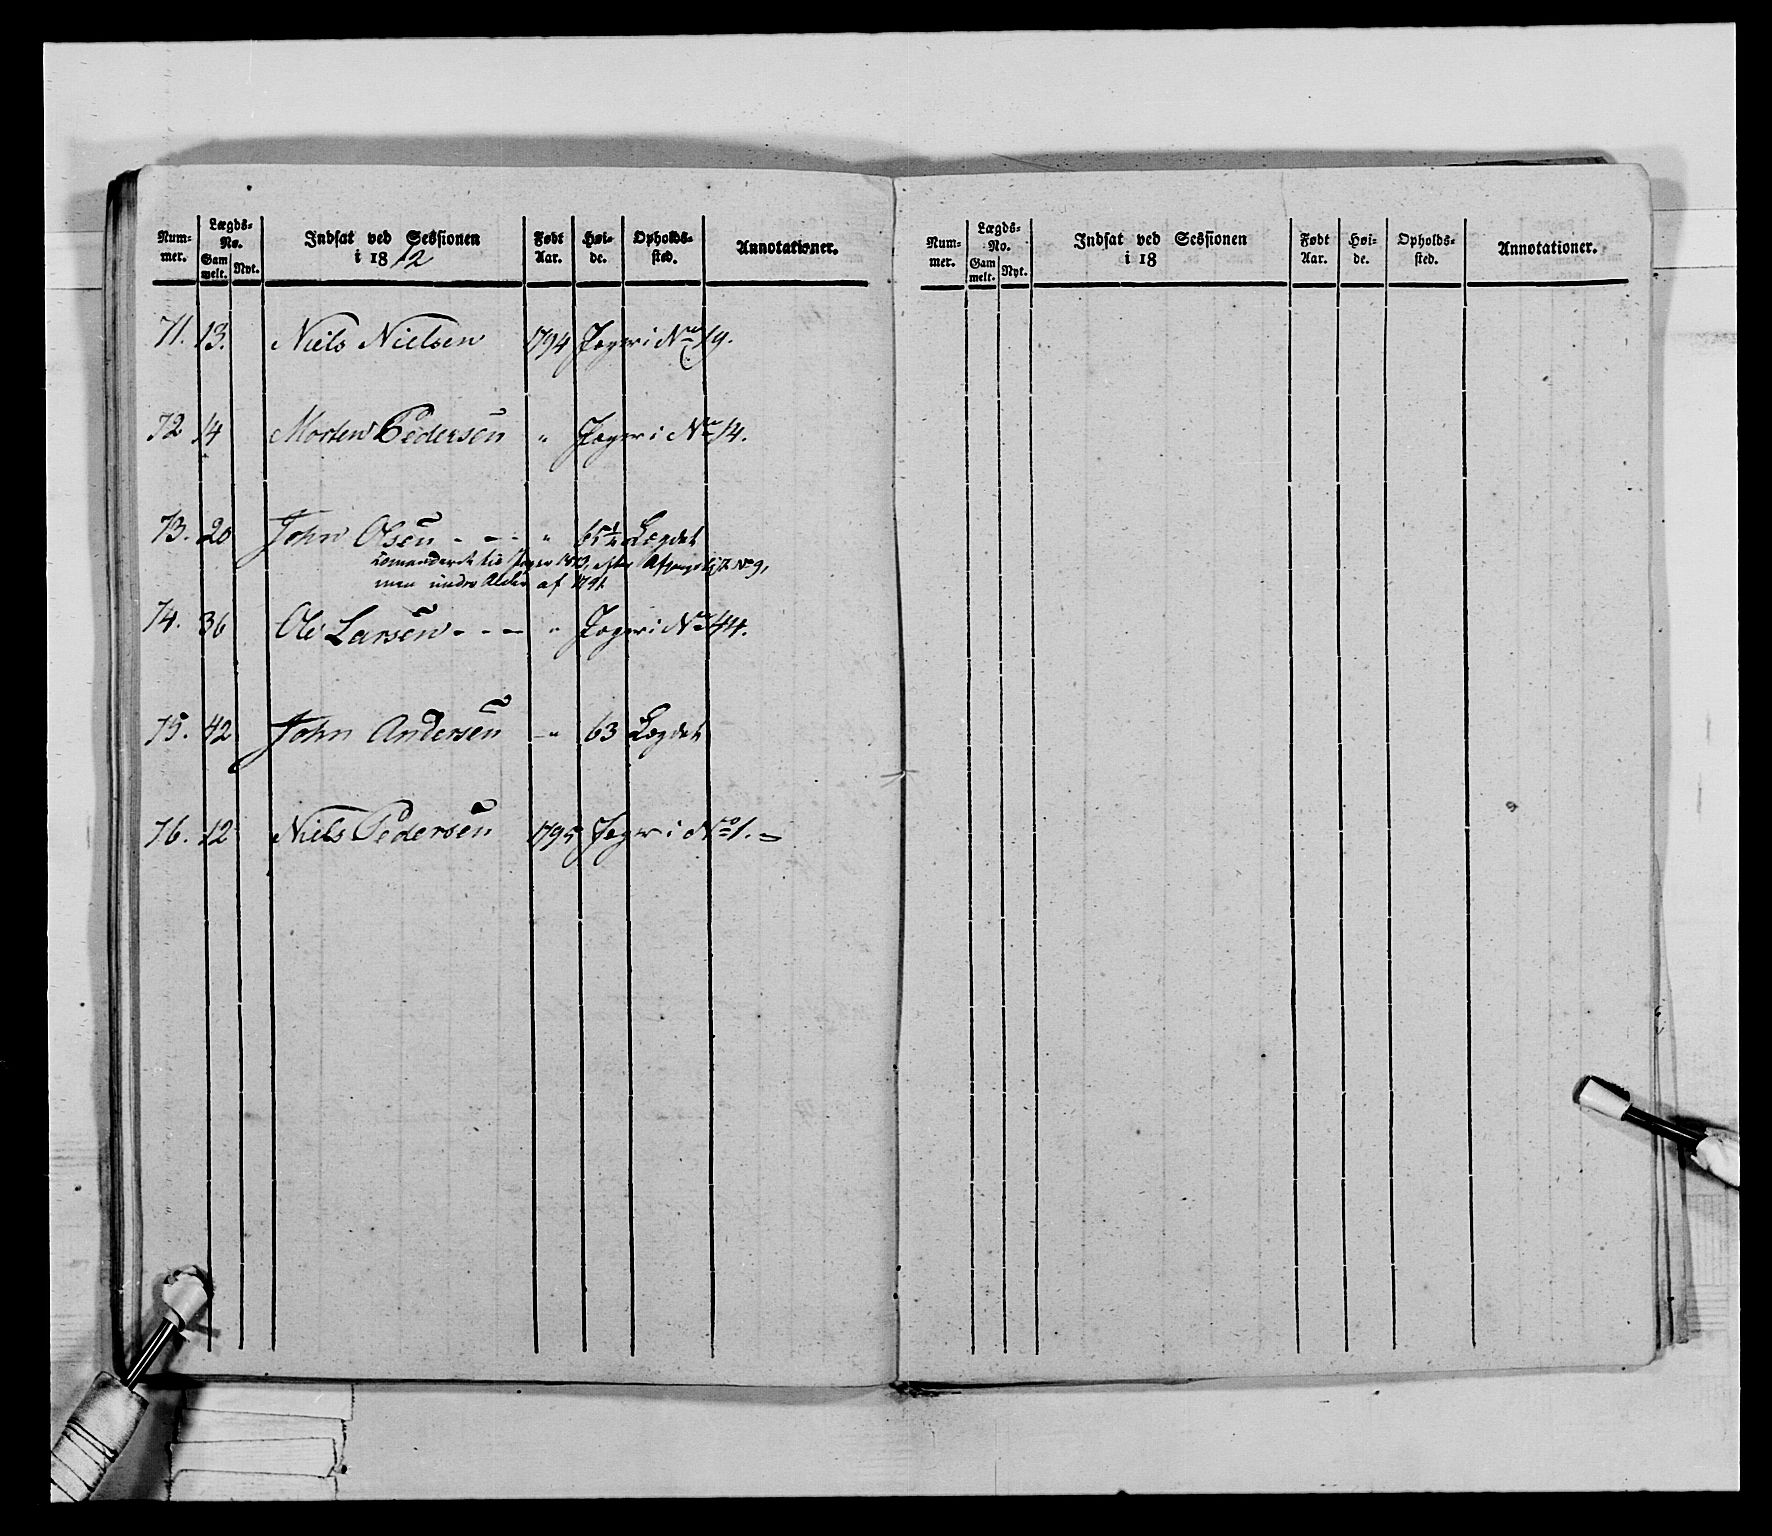 Num-
mer.
Lægds-
No.
Gam
melt.
Nyt.
Indsat ved Sessionen
i 1812
Født
Aar.
Høi-
de.
Opholds-
sted.
Annotationer.
71. 13. Niels Nielsen 1794 Jæger i No 19.
72 14 Morten Pedersen " Jæger i No 14.
73. 20 John Olsen - - - " 65 1/4 Lægdet
comanderet til Jæger 1813, efter No 9,
men under Alder af 1794
74. 36 Ole Larsen - - - " Jæger i No 44.
75. 42 John Andersen - " 63 Lægdet
76. 12 Niels Pedersen 1795 Jæger i No 1. -
Num-
mer.
Lægds-
No.
Gam
melt.
Nyt.
Indsat ved Sessionen
i 18
Født
Aar.
Høi-
de.
Opholds-
sted.
Annotationer.